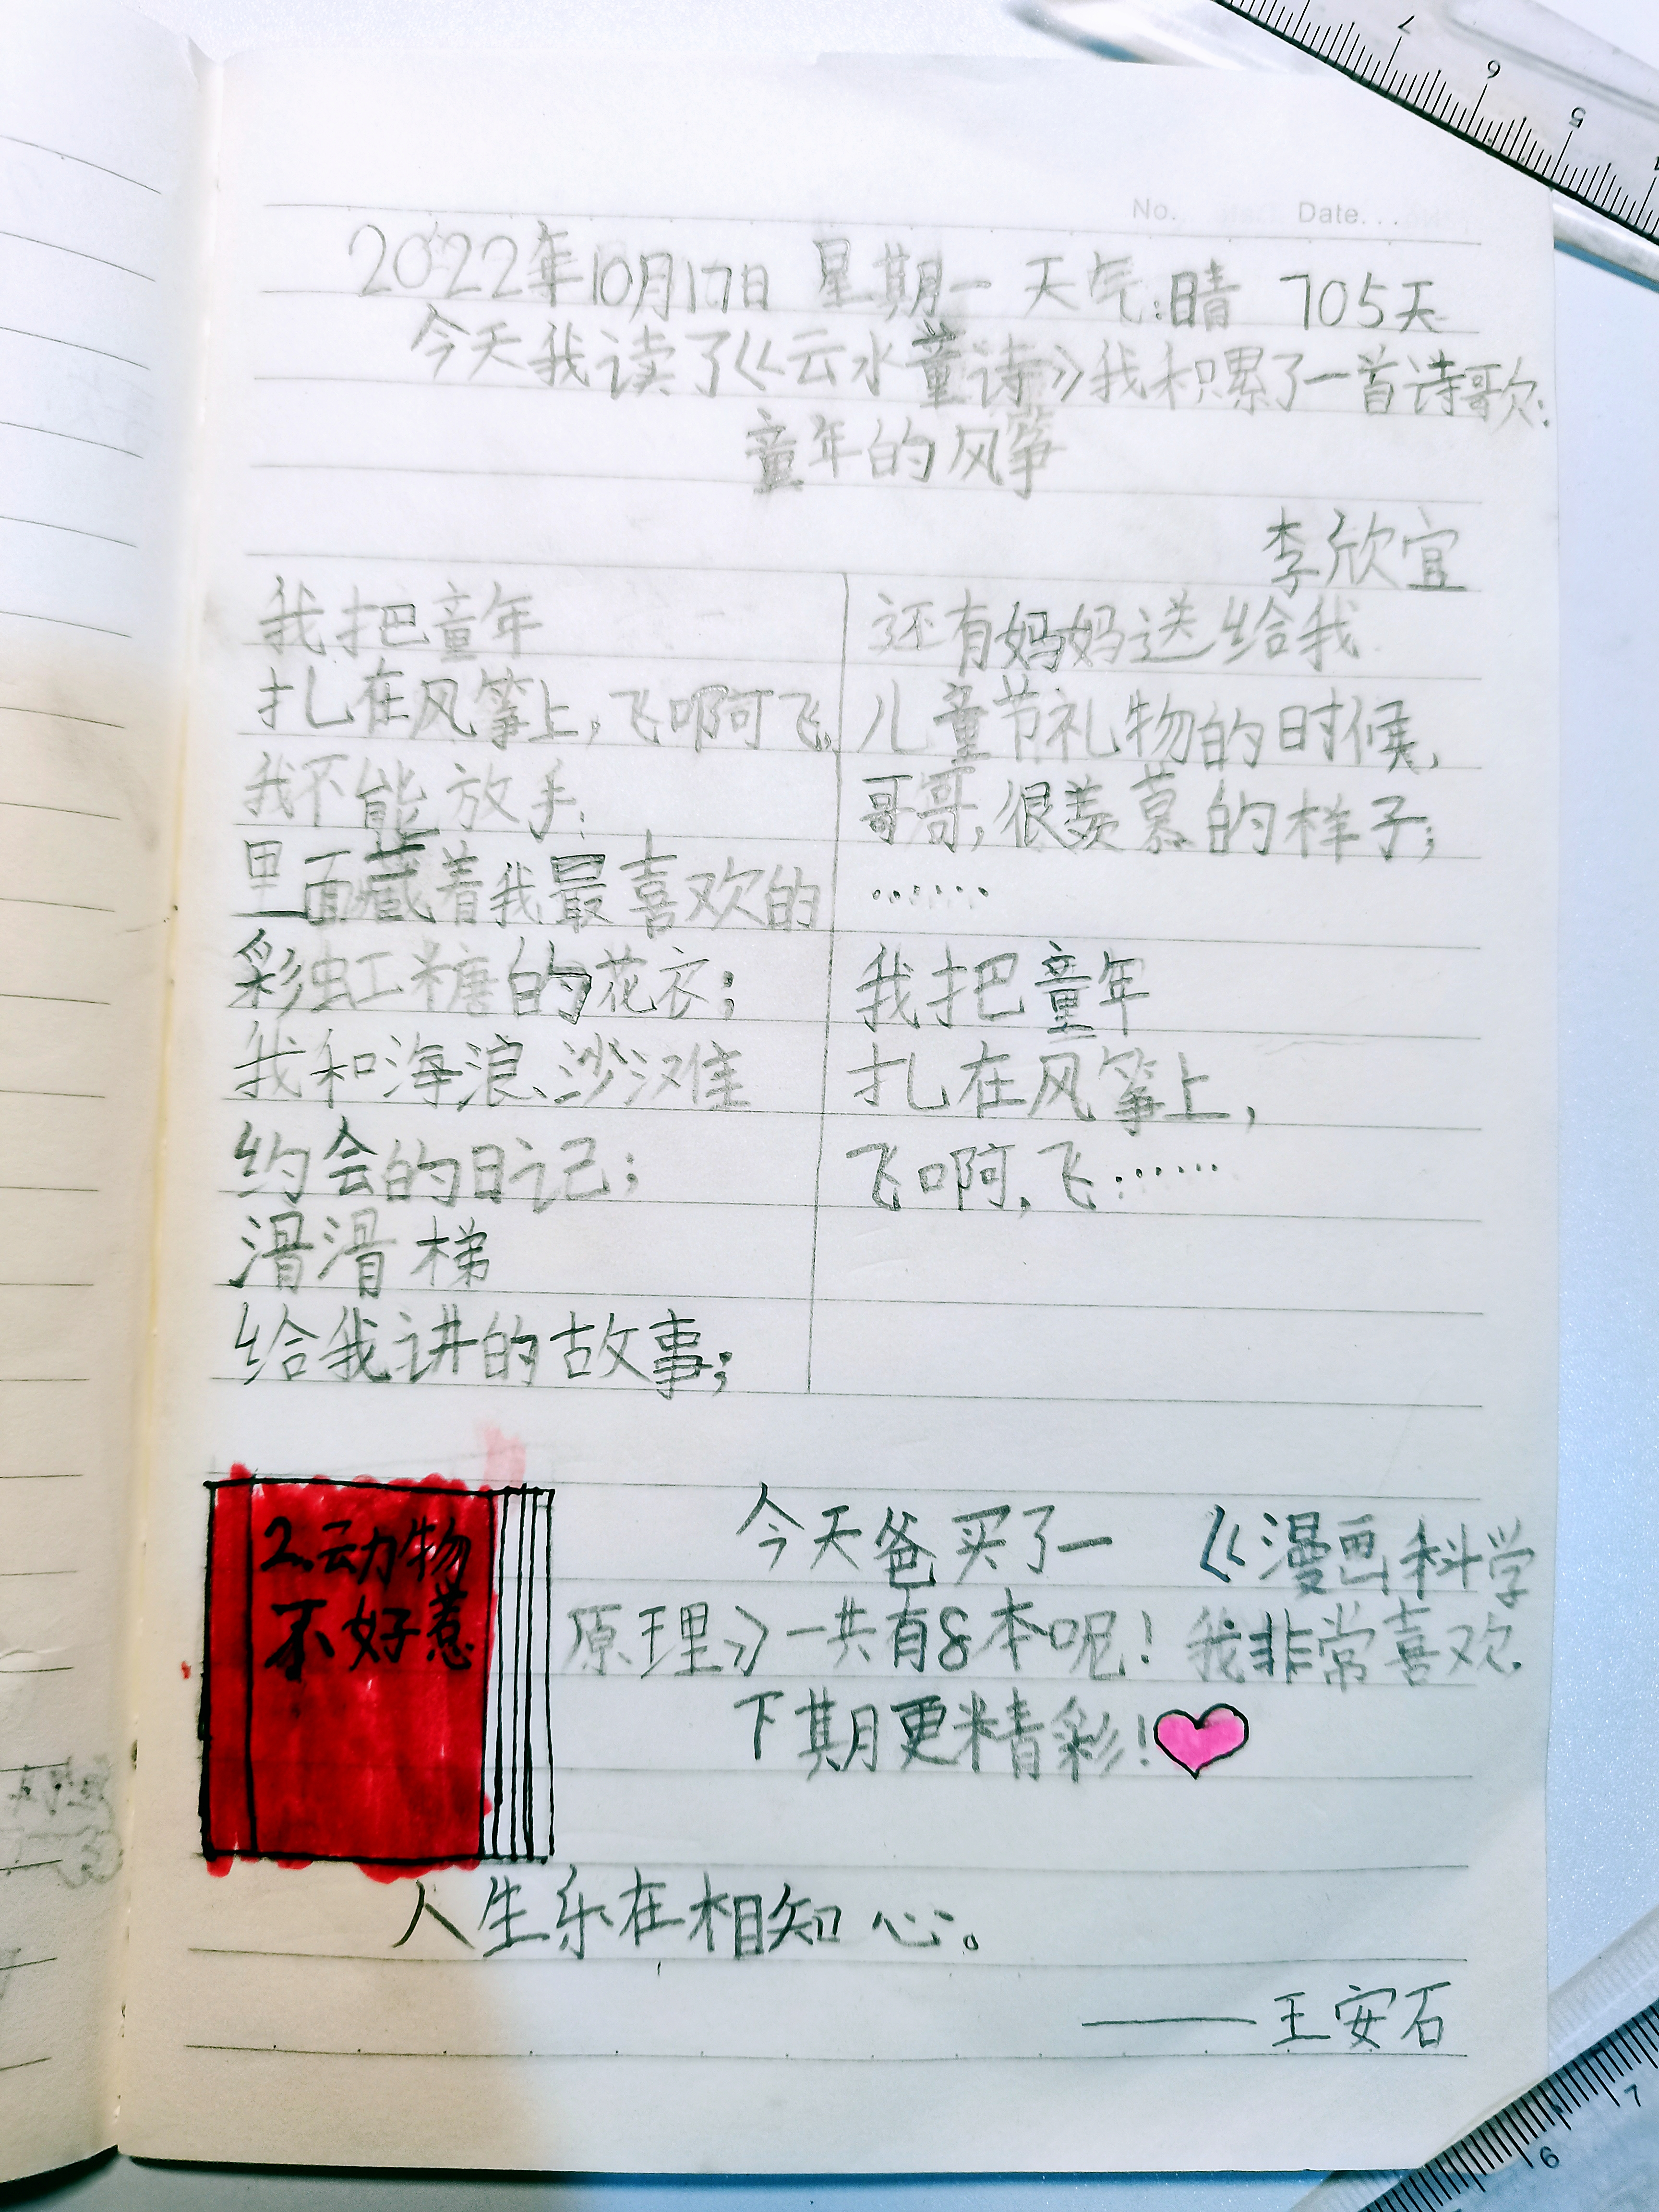 No. Date...
2022年10月17日 星期一 天气:晴 705天
今天我读了《云水童诗》我积累了一首诗歌:
童年的风筝
李欣宜
我把童年
扎在风筝上,飞啊飞,
我不能放手;
里面藏着我最喜欢的
彩虹糖的花衣;
我和海浪、沙滩
约会的日记;
滑滑梯
给我讲的故事;
还有妈妈送给我
儿童节礼物的时候,
哥哥,很羡慕的样子;
.......
我把童年
扎在风筝上,
飞啊,飞.......
2.动物
不好惹
今天爸买了一 《漫画科学
原理》一共有8本呢!我非常喜欢.
下期更精彩!
人生乐在相知心。
——王安石
7 6 5
7 6